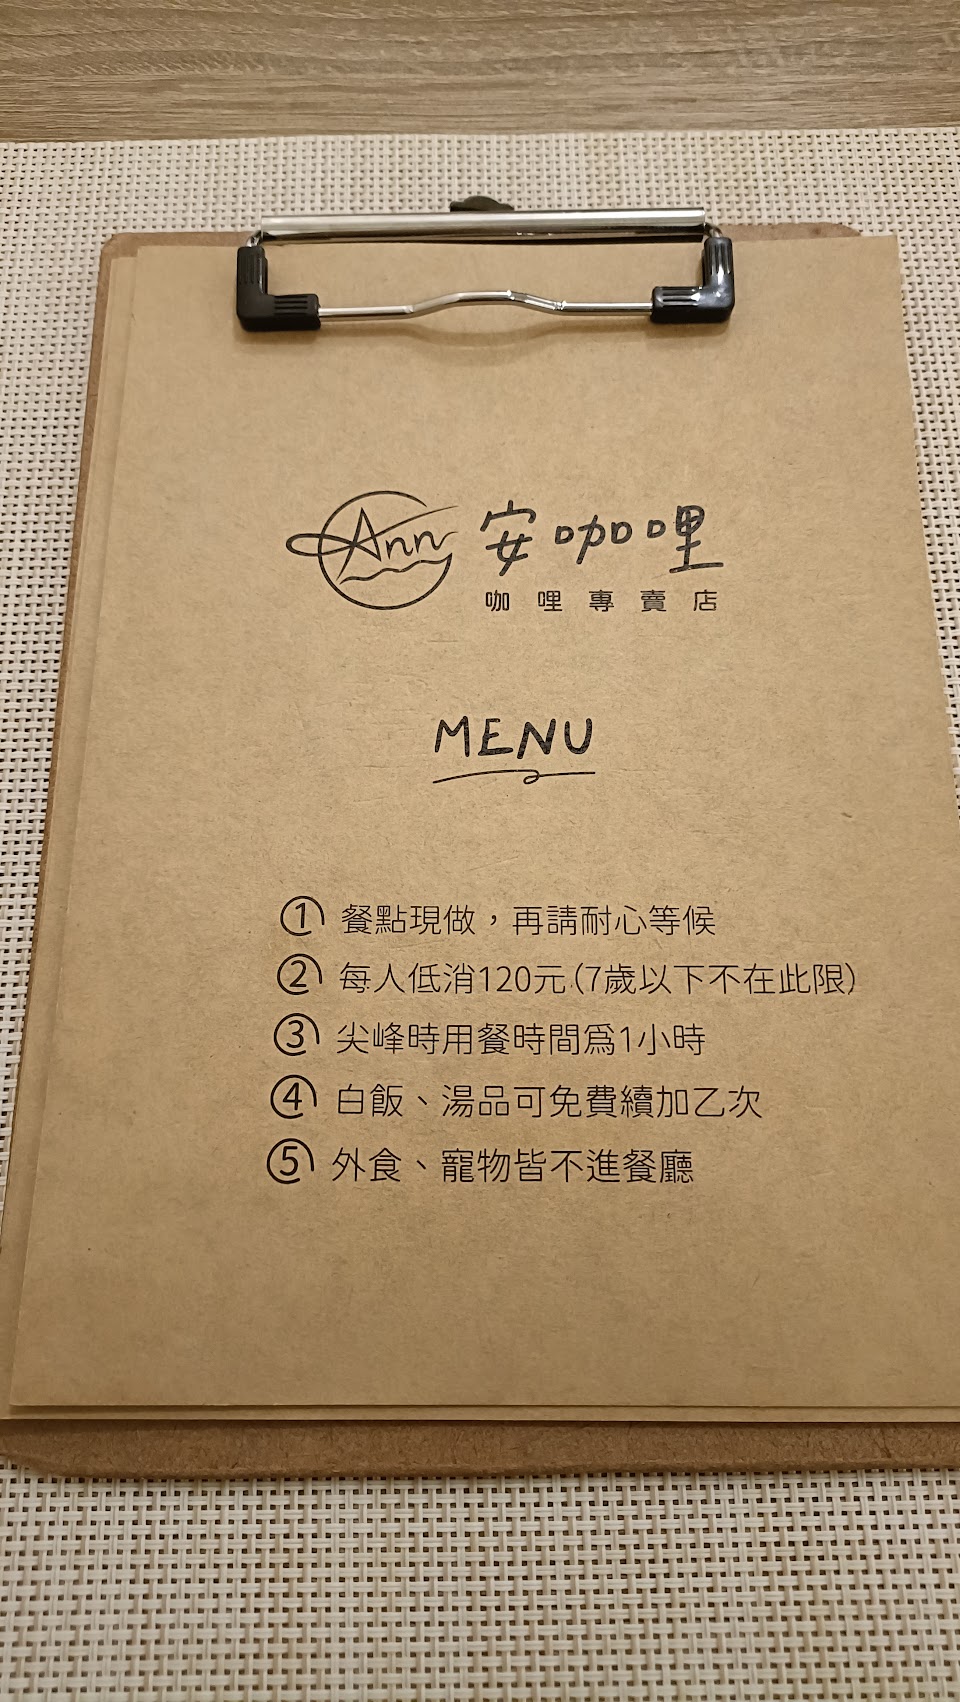 Ann
安咖哩
咖哩專賣店
MENU
① 餐點現做，再請耐心等候
② 每人低消120元(7歲以下不在此限)
③ 尖峰時用餐時間爲1小時
④ 白飯、湯品可免費續加乙次
⑤ 外食、寵物皆不進餐廳